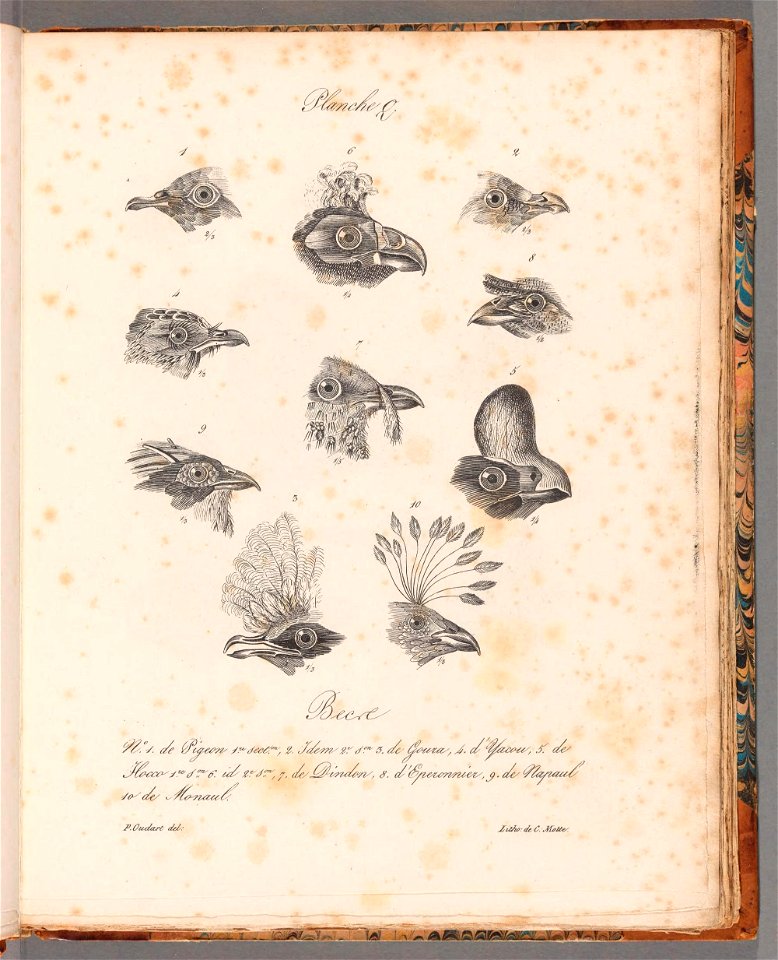 Planche Q
1
6
2
2/3
2/3
8
1/2
4
1/2
7
5
1/2
9
1/2
1/2
1/4
3
10
1/3
1/2
Becs
N.º 1. de Pigeon 1.re sect.on, 2. Idem 2.e S.on 3. de Goura, 4. d'Yacou, 5. de
Hocco 1.re S.on 6. id 2.e S.on, 7. de Dindon, 8. d'Eperonnier, 9. de Napaul
10 de Monaul.
P. Oudart del:
Litho: de C. Motte.